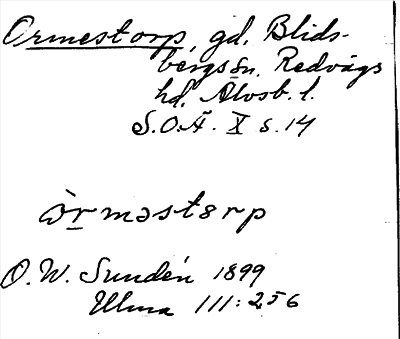 Ormestorp, gd, Blids-
bergs sn, Redvägs
hd, Älvsb. l.
S.O.Ä. X s. 14
òrməstərp
O. W. Sundén 1899
Ulma 111:256